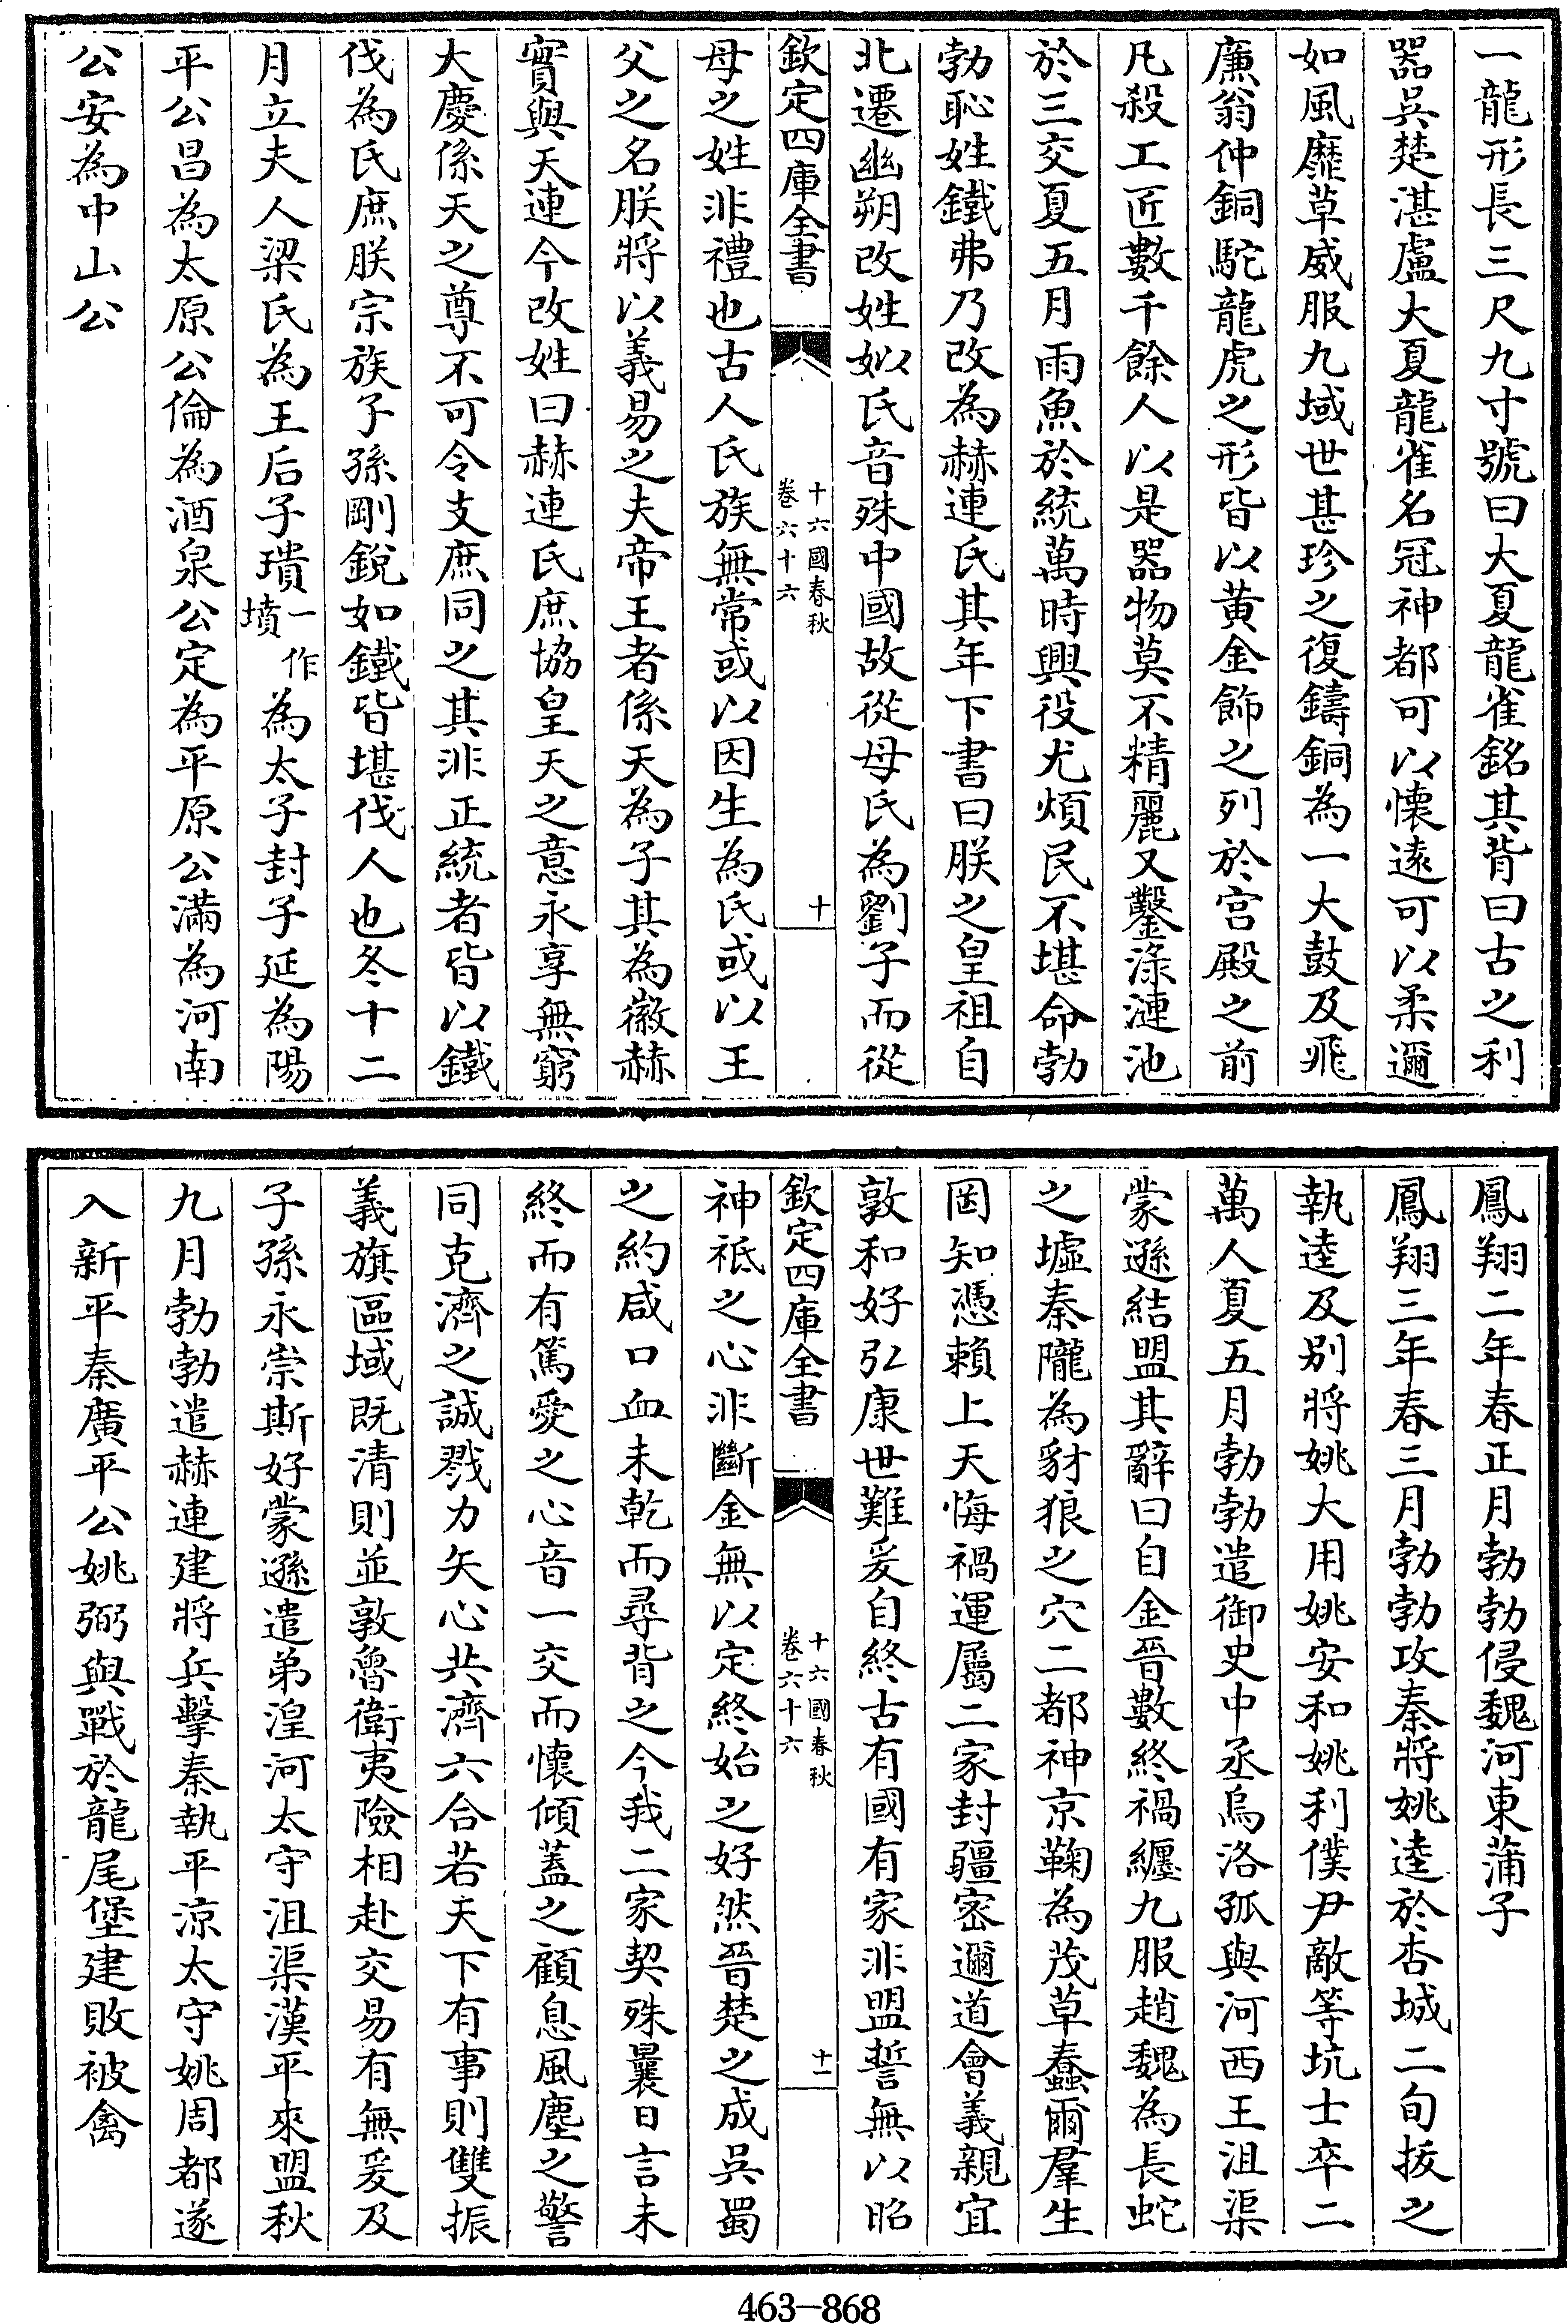 一龍形長三尺九寸號曰大夏龍雀銘其背曰古之利
器吳楚湛盧大夏龍雀名冠神都可以懷遠可以柔邇
如風靡草威服九域世甚珍之復鑄銅為一大鼓及飛
廉翁仲銅駝龍虎之形皆以黃金飾之列於宫殿之前
凡殺工匠數千餘人以是器物莫不精麗又鑿淥漣池
於三交夏五月雨魚於統萬時興役尤煩民不堪命勃
勃恥姓鐵弗乃改為赫連氏其年下書曰朕之皇祖自
北遷幽朔改姓姒氏音殊中國故從母氏為劉子而從
欽定四庫全書
十六國春秋
卷六十六
十
母之姓非禮也古人氏族無常或以因生為氏或以王
父之名朕將以義易之夫帝王者係天為子其為徽赫
實與天連今改姓曰赫連氏庶協皇天之意永享無窮
大慶係天之尊不可令支庶同之其非正統者皆以鐵
伐為氏庶朕宗族子孫剛銳如鐵皆堪伐人也冬十二
月立夫人梁氏為王后子璝一作墳為太子封子延為陽
平公昌為太原公倫為酒泉公定為平原公滿為河南
公安為中山公
鳳翔二年春正月勃勃侵魏河東蒲子
鳳翔三年春三月勃勃攻秦將姚逵於杏城二旬拔之
執逵及别將姚大用姚安和姚利僕尹敵等坑士卒二
萬人夏五月勃勃遣御史中丞烏洛孤與河西王沮渠
蒙遜結盟其辭曰自金晉數終禍纏九服趙魏為長蛇
之墟秦隴為豺狼之穴二都神京鞠為茂草蠢爾羣生
罔知憑賴上天悔禍運屬二家封疆密邇道會義親宜
敦和好弘康世難爰自終古有國有家非盟誓無以昭
欽定四庫全書
十六國春秋
卷六十六
十一
神祇之心非斷金無以定終始之好然晉楚之成吳蜀
之約咸口血未乾而尋背之今我二家契殊曩日言未
終而有篤愛之心音一交而懷傾蓋之顧息風塵之警
同克濟之誠戮力矢心共濟六合若天下有事則雙振
義旗區域既清則並敦魯衛夷險相赴交易有無爰及
子孫永崇斯好蒙遜遣弟湟河太守沮渠漢平來盟秋
九月勃勃遣赫連建將兵擊秦執平涼太守姚周都遂
入新平秦廣平公姚弼與戰於龍尾堡建敗被禽
463-868